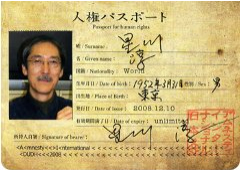 人権パスポート
Passport for human rights
姓 / Surname
星川
名 / Given name
淳
国籍 / Nationality / World
生年月日 / Date of birth / 1952年3月31日 性別 / Sex / 男
出生地 / Place of Birth / 東京
発行日 / Date of issue / 2008.12.10
/ Date of expiry /
/ Signature of bearer
星川 淳
<Amnesty<<International<<<<<<<<<<<<<<<<
<UDHR<<<2008<<<<<<<